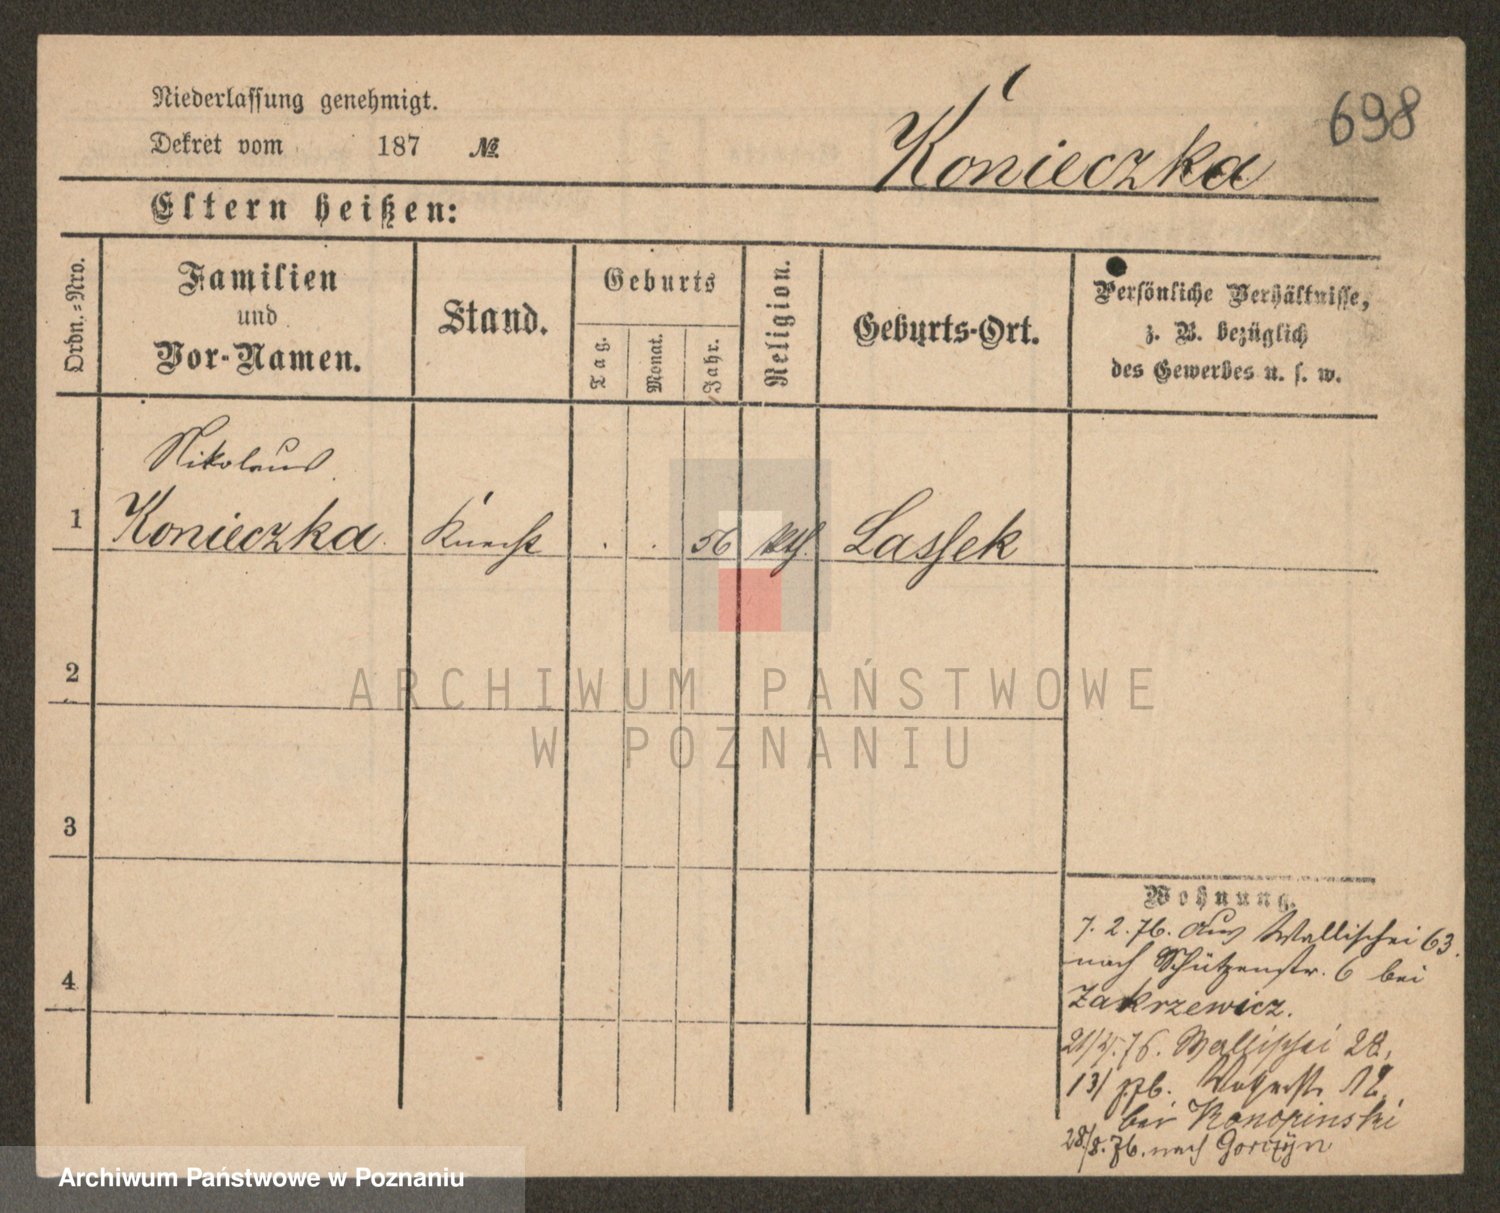 Niederlassung genehmigt.
Dekret vom 187 №
Konieczka
698
Eltern heißen:
Ordn.-Nro.
Familien
und
Vor-Namen.
Stand.
Geburts
Tag.
Monat.
Jahr.
Religion.
Geburts-Ort.
Persönliche Verhältnisse,
z. B. bezüglich
des Gewerbes u. s. w.
Nikolaus
1 Konieczka Knecht . . 56 kth. Lassek
2
3
4
Wohnung.
7. 2. 76. aus Wallischei 63.
nach Schützenstr. 6 bei
Zakrzewicz.
76. Wallischei 28,
13/ 12.
bei Konopinski
28/8. 76. nach Gorczyn
ARCHIWUM PAŃSTWOWE
W POZNANIU
Archiwum Państwowe w Poznaniu